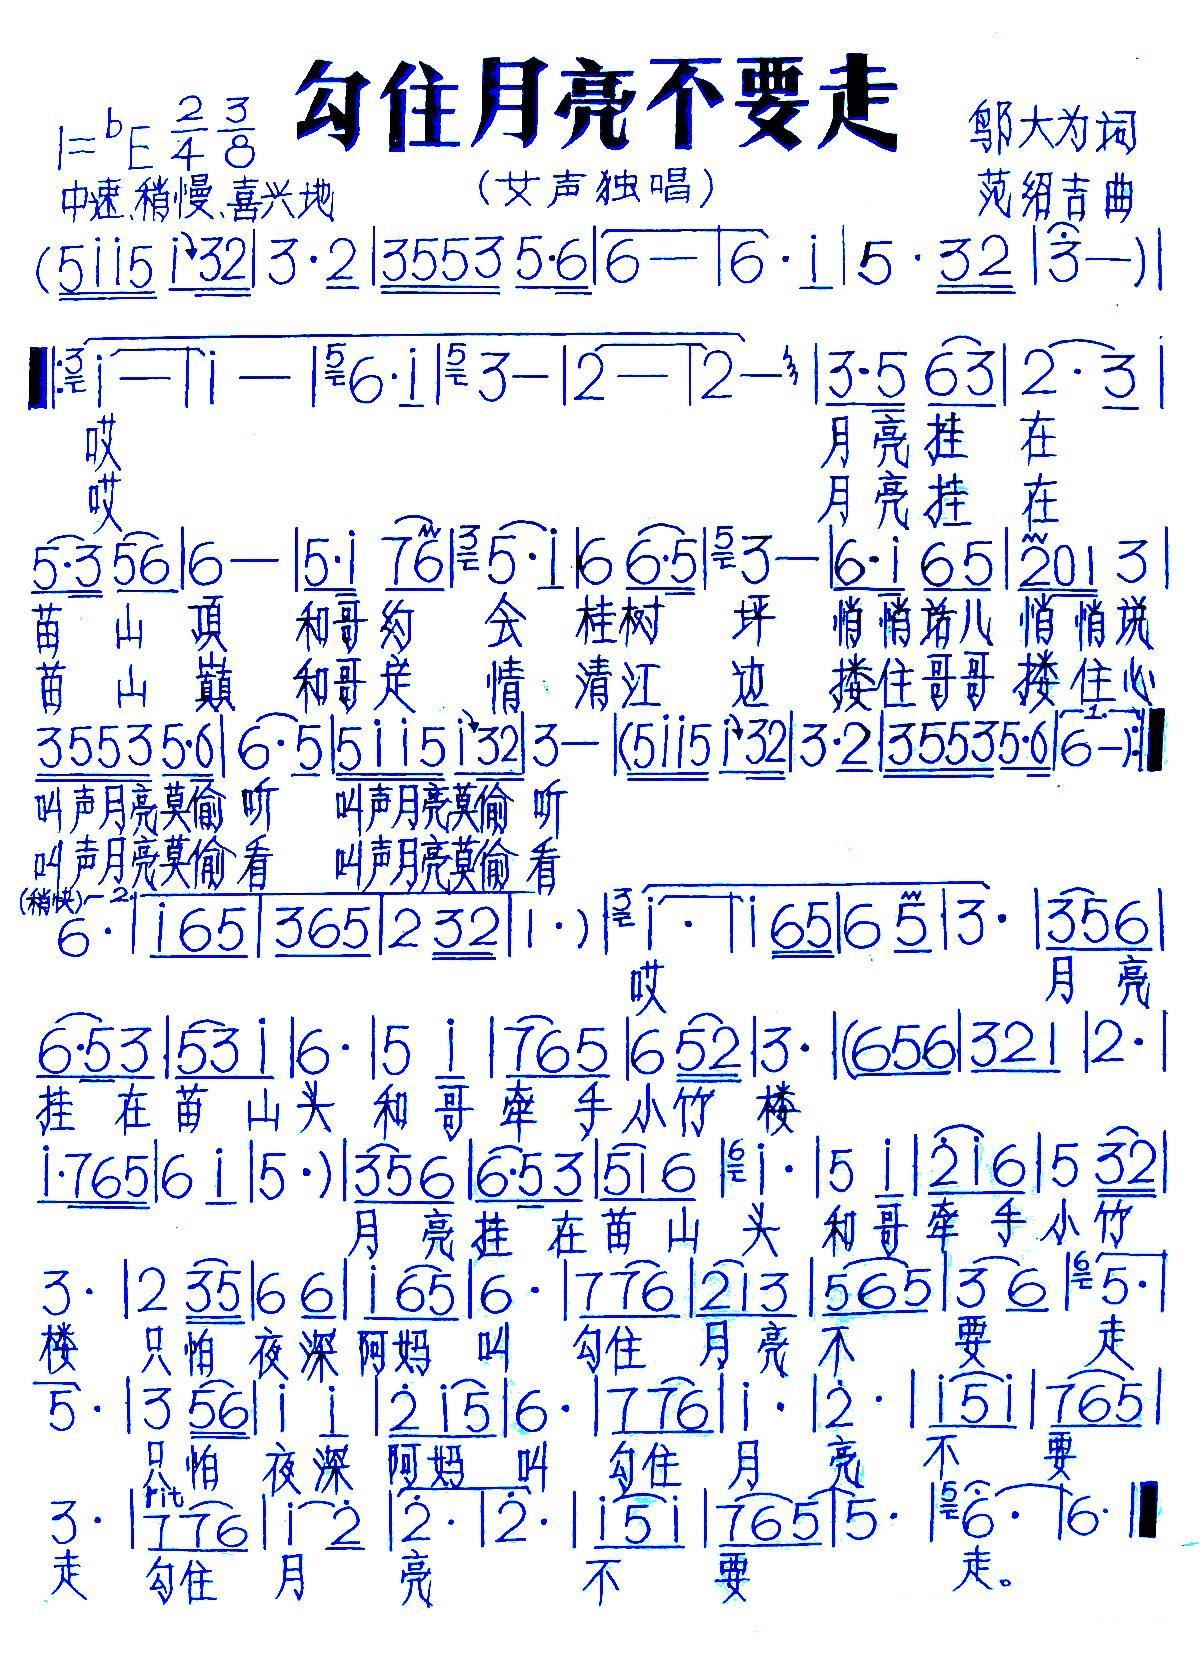 勾住月亮不要走
1=ᵇE 2/4 3/8
邬大为词
中速、稍慢、喜兴地
（女声独唱）
范绍吉曲
(5i i5 i32|3·2|3553 5·6|6—|6·i|5·32|3—)|
‖:3 i—|i—|5 6·i|5 3—|2—|2—|3·5 63|2·3|
哎 月亮挂在
哎 月亮挂在
5·3 56|6—|5·i 76|3 5·i|6 6·5|5 3—|6·i 65|201 3|
苗山顶 和哥约会桂树坪 悄悄话儿悄悄说
苗山巅 和哥定情清江边 搂住哥哥搂住心
3553 5·6|6·5|5ii5 i32|3—|(5ii5 i32|3·2|3553 5·6|1. 6—):‖
叫声月亮莫偷听 叫声月亮莫偷听
叫声月亮莫偷看 叫声月亮莫偷看
(稍快) 2. 6·|i65|365|2 32|1·)|3 i·|i 65|6 5|3·|356|
哎 月亮
6·53|53i|6·|5 i|765|6 52|3·|(656|321|2·|
挂在苗山头和哥牵手小竹楼
i·765|6 i|5·)|356|6·53|5i6|6 i·|5 i|2i6|5 32|
月亮挂在苗山头和哥牵手小竹
3·|2 35|6 6|i65|6·|776|2i3|565|3 6|6 5·|
楼 只怕夜深阿妈叫 勾住月亮不要走
5·|3 56|i i|2i5|6·|776|i·|2·|i5i|765|
只怕夜深阿妈叫 勾住月亮不要
rit
3·|776|i 2|2·|2·|i5i|765|5·|5 6·|6·‖
走 勾住月亮不要走。